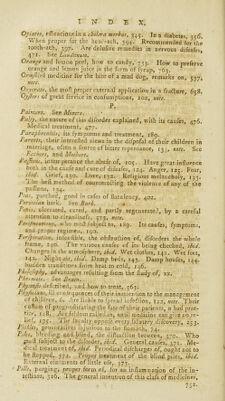 INDEX.
Opiates, efficacious in a cholera morbus, 345. In a diabetes, 356.
When proper for the head-ach, 399. Recommended for the
tooth-ach, 397. Are delusive remedies in nervous diseases,
471. See Laudanum.
Orange and lemon peel, how to candy, 753. How to preserve
orange and lemon juice in the form of syrup, 763.
Ormskird medicine for the bite of a mad dog, remarks on, 537,
note.
Ointment, the most proper external application in a fracture, 658.
Oysters of great service in consumptions, 202, note.
P.
Painters. See Miners.
Palsy, the nature of this disorder explained, with its causes, 476.
Medical treatment, 477.
Paraphrenitis, its symptoms and treatment, 189.
Parents, their interested views in the disposal of their children in
marriage, often a source of bitter repentance, 133, note. See
Fathers, and Mothers.
Passions, intemperance the abuse of, 105. Have great influence
both in the cause and cure of diseases, 124. Anger, 125. Fear,
ibid. Grief, 129. Love, 132. Religious melancholy, 133.
The best method of counteracting the violence of any of the
passions, 134.
Peas, parched, good in cases of flatulency, 402.
Peruvian bark. See Bark.
Peruke, ulcerated, cured, and partly regenerated, by a careful
attention to cleanliness, 572, note.
Peripneumony, who most subject to, 189. Its causes, symptoms,
and proper regimen, 190.
Perspiration, insensible, the obstruction of, disorders the whole
frame, 190. The various causes of its being checked, ibid.
Changes in the atmosphere, ibid. Wet clothes, 141. Wet feet,
142. Night-air, ibid. Damp beds, 143. Damp houses, 144.
Sudden transitions from heat to cold, 146.
Philosophy, advantages resulting from the study of, xx.
Phrensies. See Brain.
Phymosis described, and how to treat, 561.
Physicians, ill consequences of their inattention to the management
of children, 6. Are liable to spread infection, 112, note. Their
custom of prognosticating the fate of their patients, a bad practice, 118.
Are seldom called in, until medicine can give no relief, 175. The faculty oppose every salutary discovery, 253.
Pickles, provocative injurious to the stomach, 74.
Piles, bleeding and blind, the distinction between, 370. Who
most subject to the disorder, ibid. General causes, 371. Medical
treatment of, ibid. Periodical discharges of, ought not to
be stopped, 374. Proper treatment of the blind piles, ibid.
External ointments of little use, 375.
Pills, purging, proper form of, for an inflammation of the intestines,
316. The general intention of this class of medicines,
752.